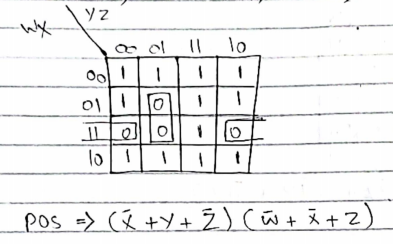 WX YZ
00 01 11 10
00 1 1 1 1
01 1 0 1 1
11 0 0 1 0
10 1 1 1 1
POS => (X̄ + Y + Z̄) (W̄ + X̄ + Z)